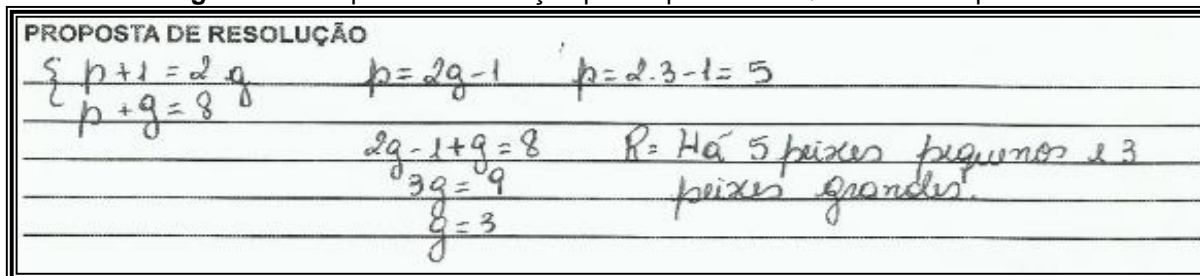 PROPOSTA DE RESOLUÇÃO
{ p+1 = 2g
p + g = 8
p = 2g-1
p = 2.3-1 = 5
2g-1+g = 8
3g = 9
g = 3
R = Há 5 peixes pequenos e 3
peixes grandes.